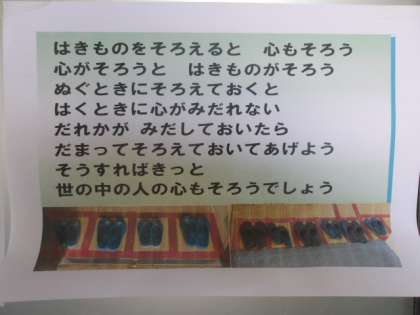 はきものをそろえると　心もそろう
心がそろうと　はきものがそろう
ぬぐときにそろえておくと
はくときに心がみだれない
だれかが　みだしておいたら
だまってそろえておいてあげよう
そうすればきっと
世の中の人の心もそろうでしょう